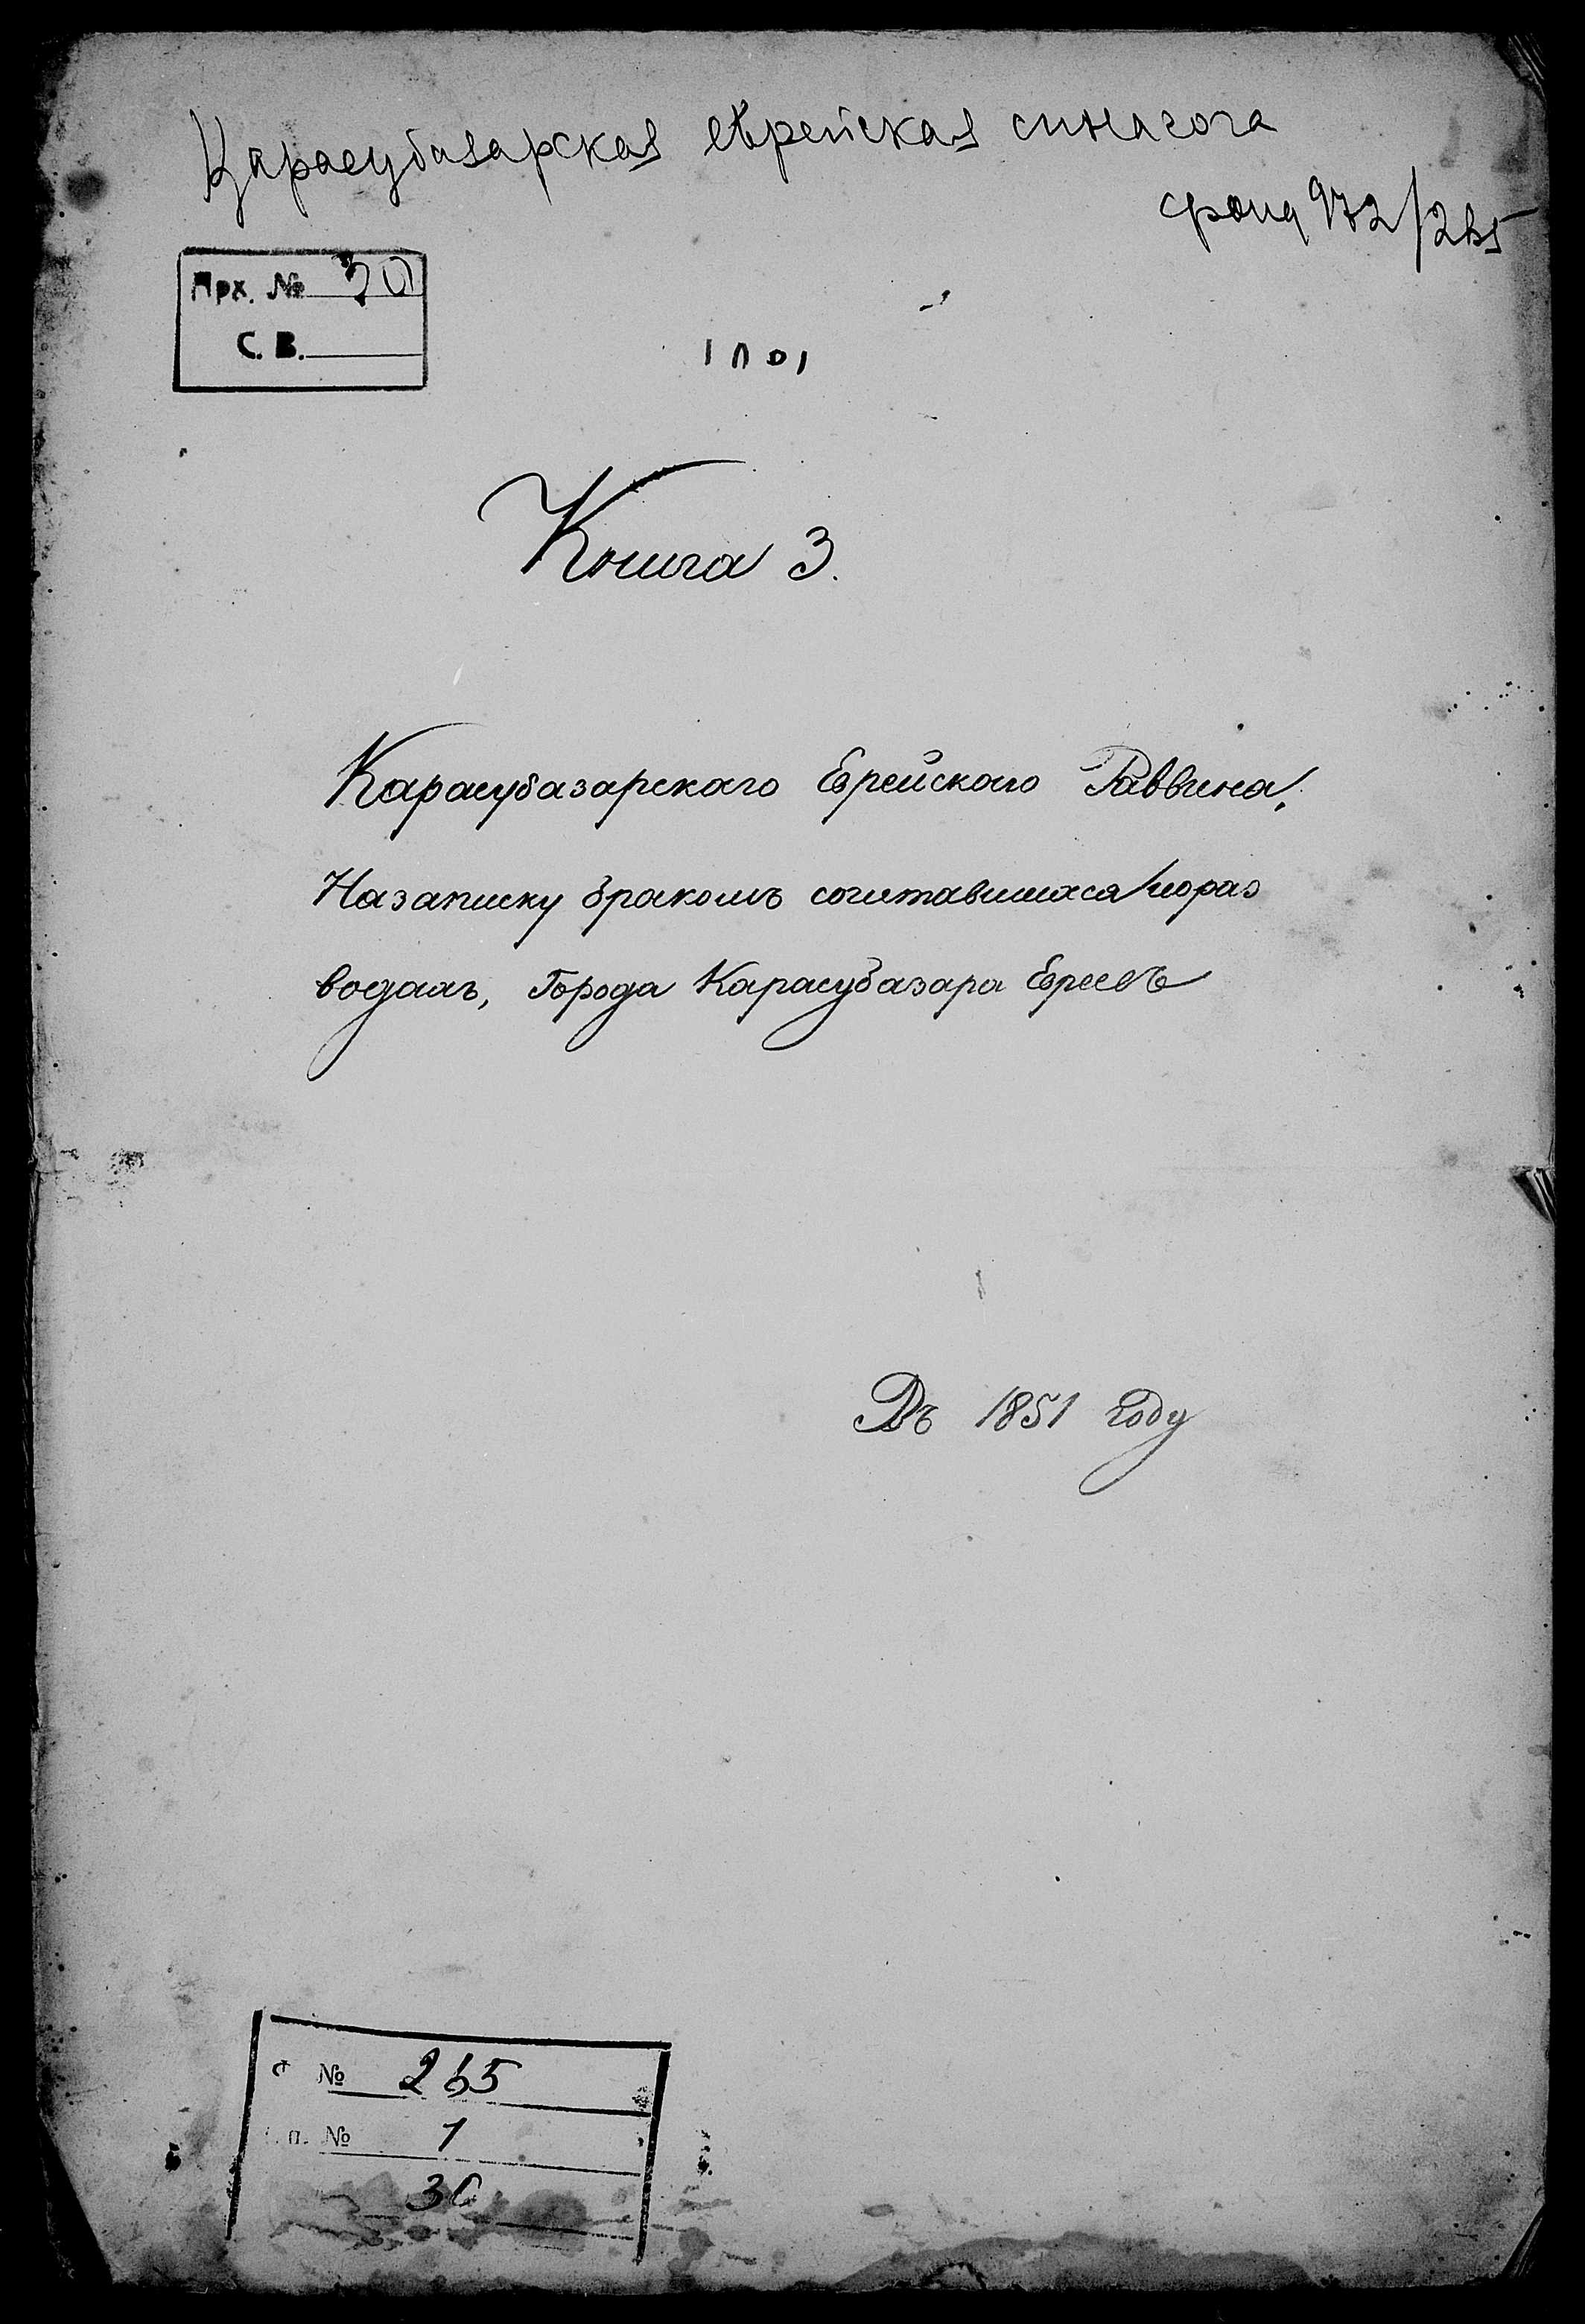 Карасубазарская еврейская синагога
фонд 972/265
Арх. № 30
С. В.
Книга 3.
Карасубазарскаго Еврейскаго Раввина,
Назаписку бракомъ сочитавшихся ипораз
водамъ, Города Карасубазара Евреевъ
Въ 1851 Году
№ 265
п. № 1
30